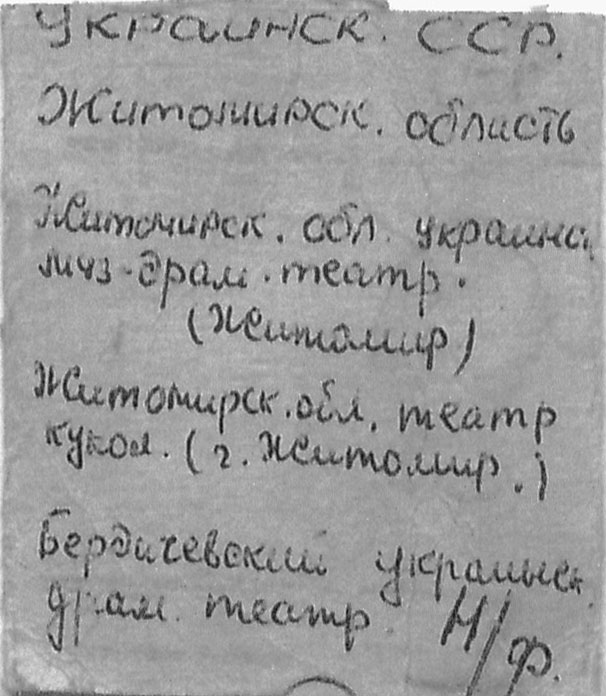 Украинск. ССР.
Житомирск. область
Житомирск. обл. украинс.
муз-драм. театр.
(Житомир)
Житомирск. обл. театр
кукол. (г. Житомир.)
Бердичевский украинск.
драм. театр. Н/Ф.